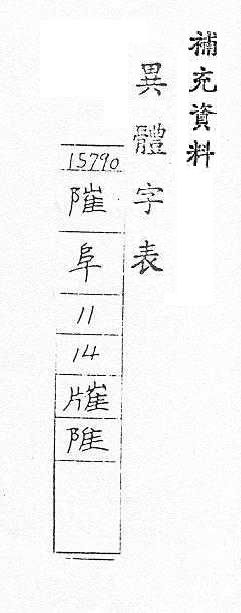 補充資料
異體字表
15790
陮
阜
11
14
𤗯
陮